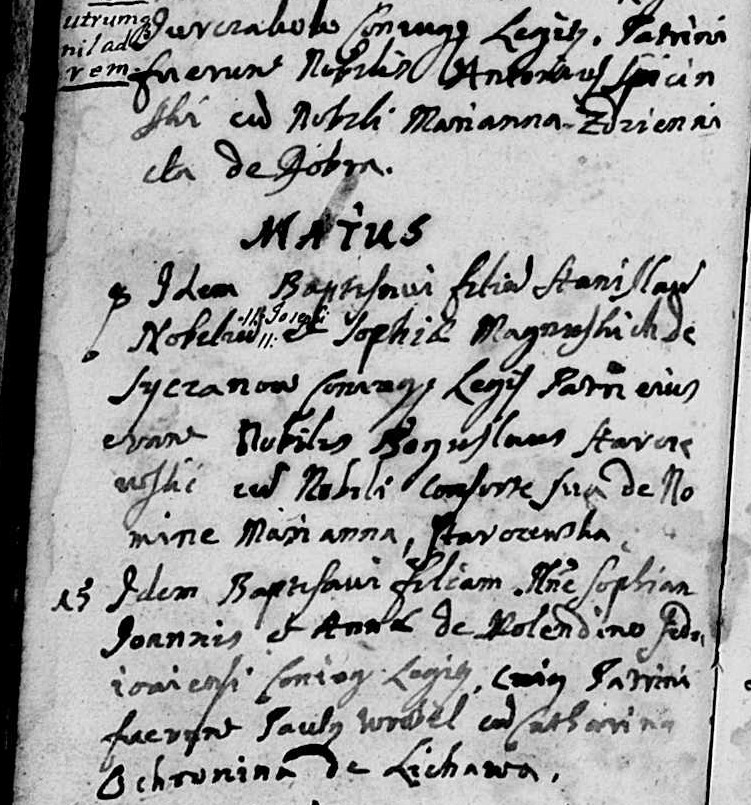 utrumq
nil ad
rem
Coniugũ Legitĩ. Patrini
fuerunt Nobilis Antonius Spicin
ski cũ Nobili Marianna Zdzienni
cka de Dobra.
MAIUS
9 Idem Baptisavi filiũ Stanislaũ
Nobiliũ Josephi et Sophiæ Magnuskich de
Conjugũ Legit Patri eius
erant Nobilis Boguslaus Starore
wski cũ Nobili Consorte sua de No
mine Marianna, Starorewska
15 Idem Baptisavi filiam Nõe Sophiam
Joannis et Annæ de Molendino
Coniug Legitĩ, cuiꝯ Patrini
fuerunt Paulꝯ Wrobel cũ Catharina
Ochronina de Lichawa.